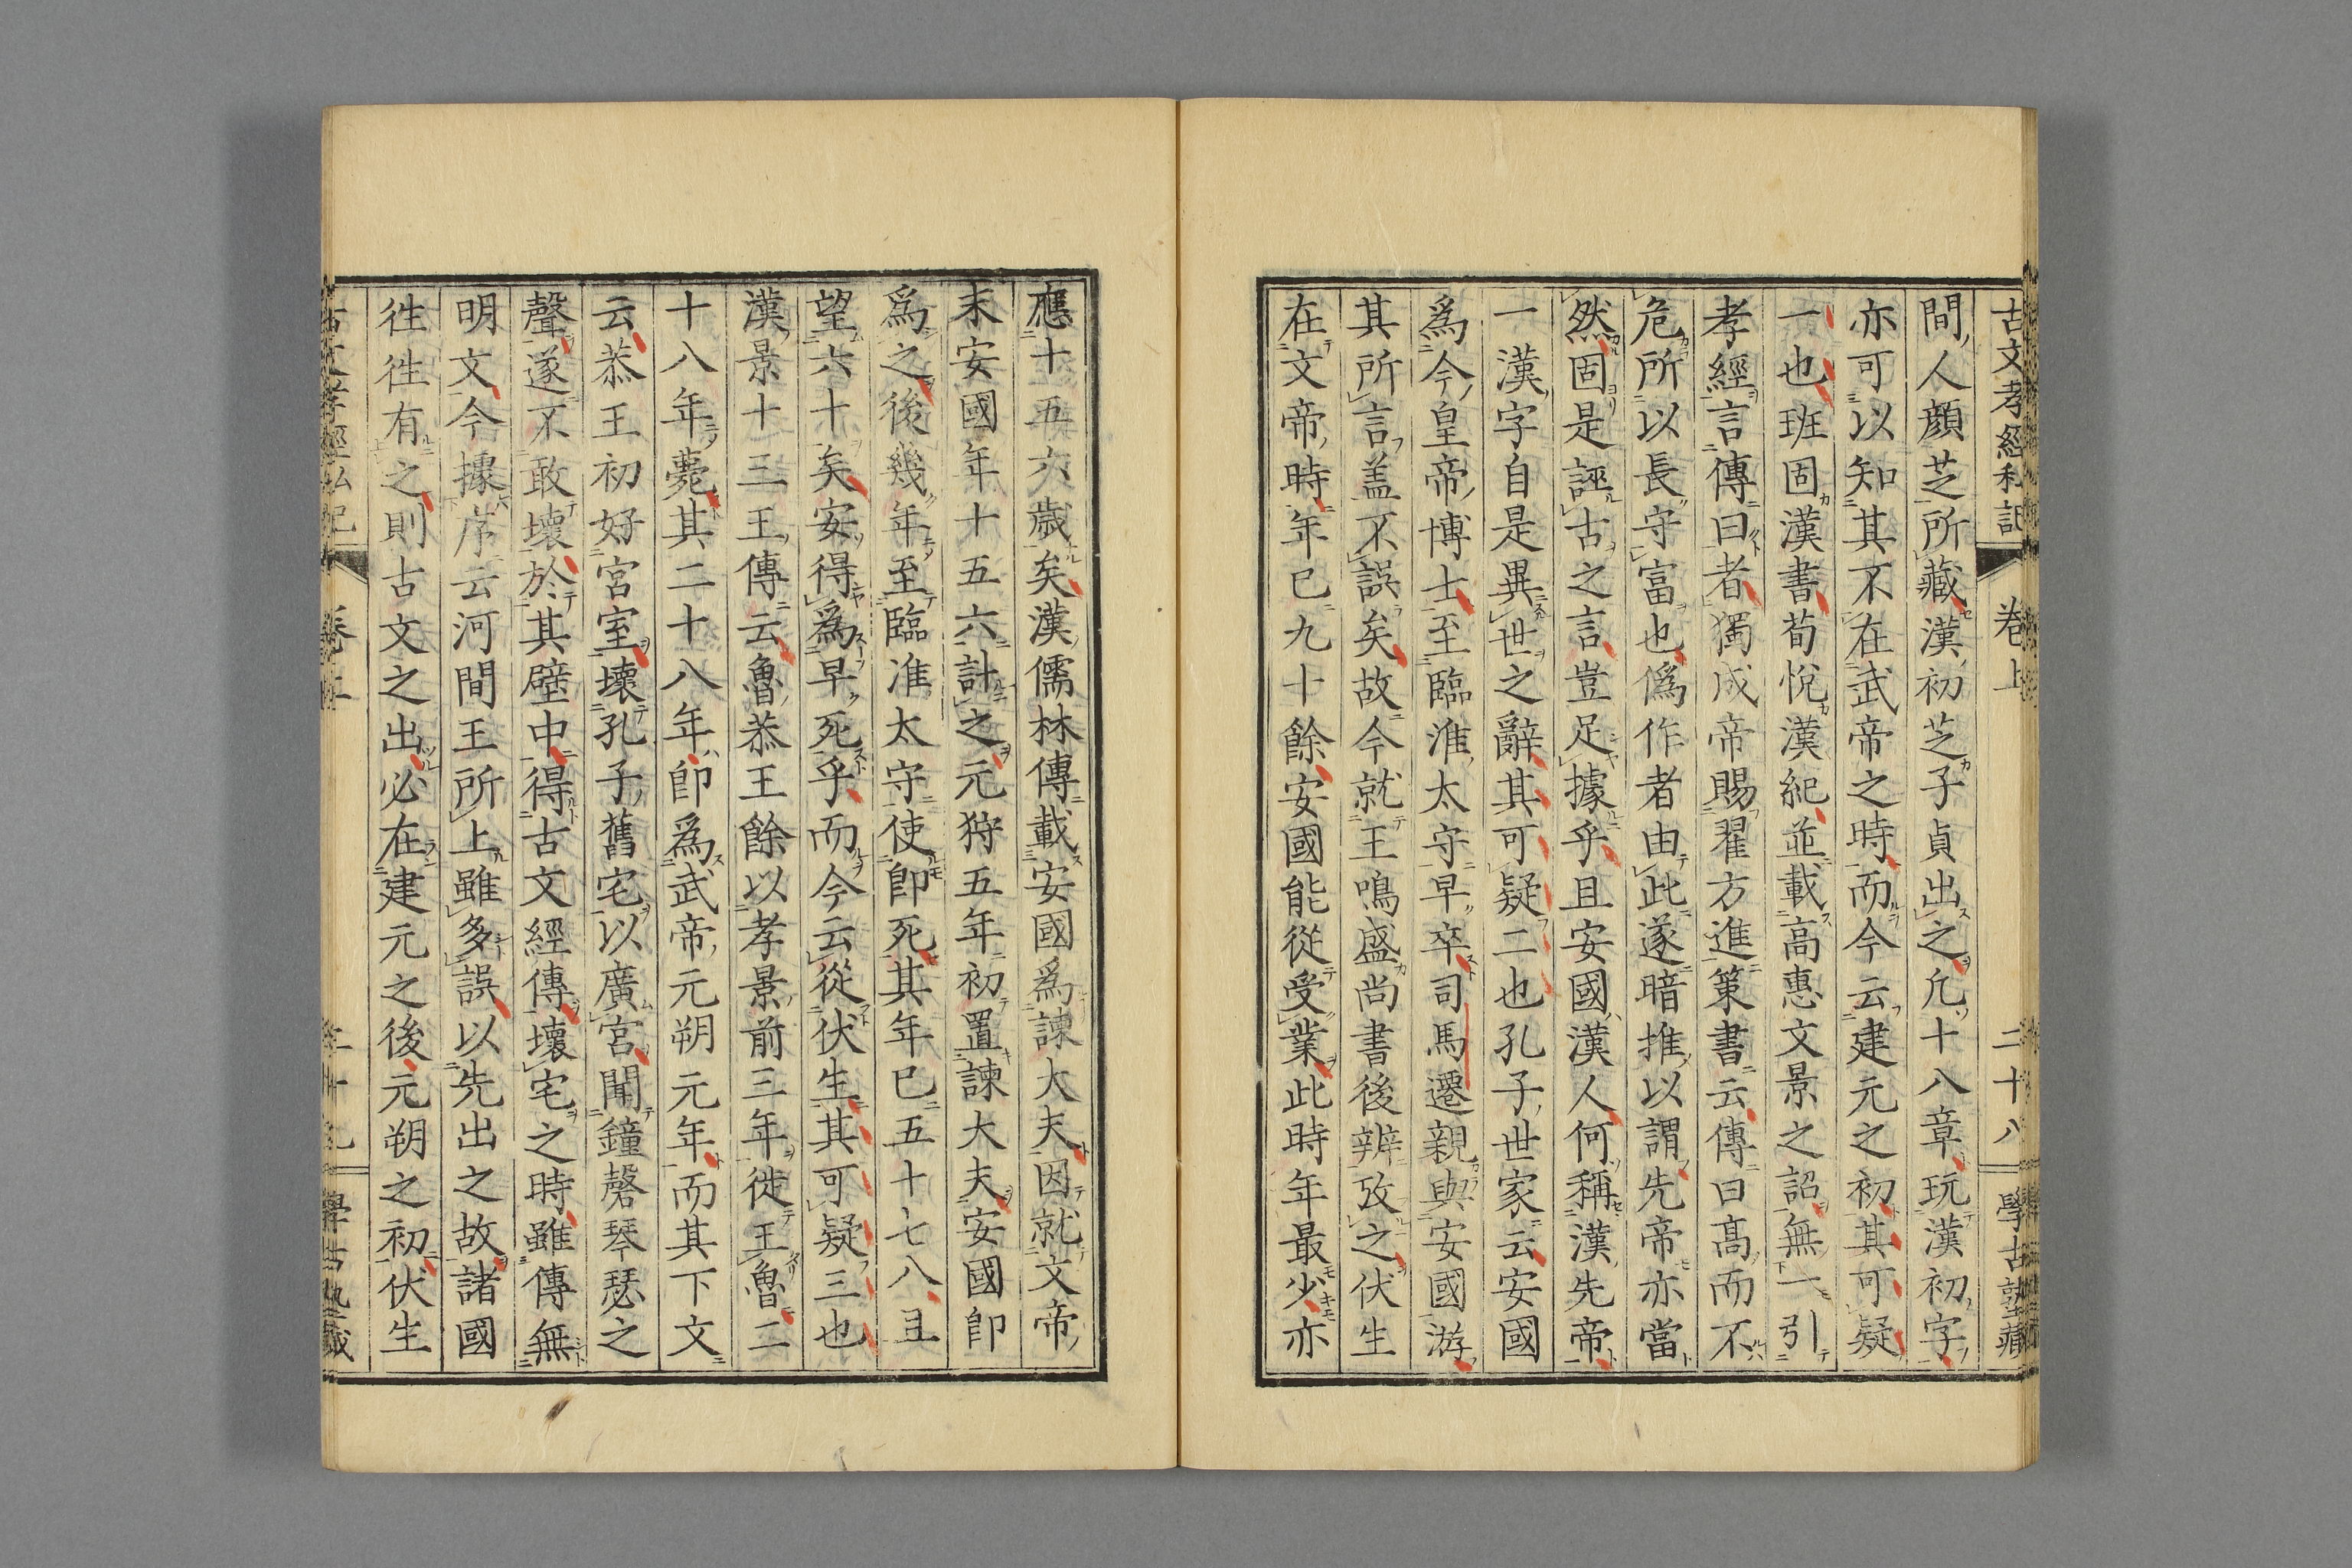 古文孝經私記 卷上 二十八 學古塾藏
間人顔芝所藏漢初芝子貞出之凢十八章玩漢初字
亦可以知其不在武帝之時而今云建元之初其可疑
一也班固漢書荀悅漢紀並載高惠文景之詔無一引
孝經言傳曰者獨成帝賜翟方進策書云傳曰高而不
危所以長守富也僞作者由此遂暗推以謂先帝亦當
然固是誣古之言豈足據乎且安國漢人何稱漢先帝
一漢字自是異世之辭其可疑二也孔子世家云安國
爲今皇帝博士至臨淮太守早卒司馬遷親與安國游
其所言盖不誤矣故今就王鳴盛尚書後辨攷之伏生
在文帝時年已九十餘安國能從受業此時年最少亦
應十五六歲矣漢儒林傳載安國爲諫大夫因就文帝
末安國年十五六計之元狩五年初置諫大夫安國卽
爲之後幾年至臨淮太守使卽死其年已五十七八且
望六十矣安得爲早死乎而今云從伏生其可疑三也
漢景十三王傳云魯恭王餘以孝景前三年徙王魯二
十八年薨其二十八年卽爲武帝元朔元年而其下文
云恭王初好宮室壞孔子舊宅以廣宮聞鐘磬琴瑟之
聲遂不敢壞於其壁中得古文經傳壞宅之時雖傳無
明文今據序云河間王所上雖多誤以先出之故諸國
徃徃有之則古文之出必在建元之後元朔之初伏生